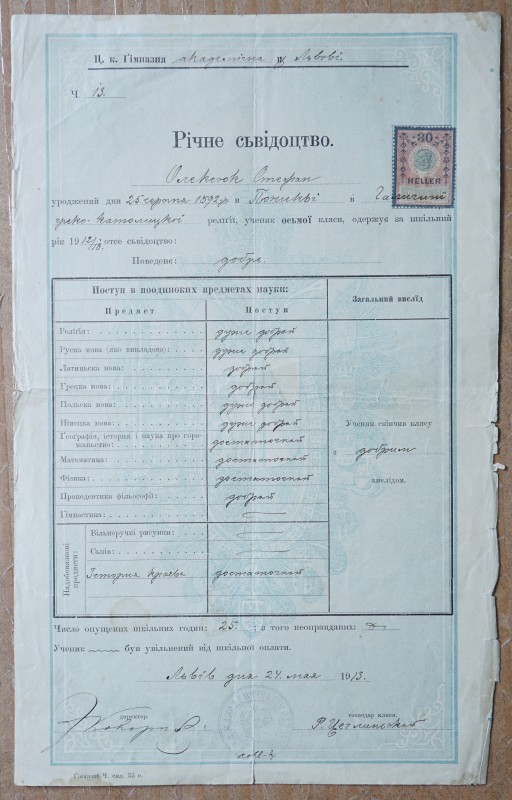 Ц. к. Ґімназия академічна у Львові.
Ч. 13.
Річне сьвідоцтво.
30
HELLER
Олексюк Стефан
уроджений дня 25 серпня 1892 р. в в Галичині
греко-католицкої релїґії, ученик осьмої кляси, одержує за шкільний
рік 1912/13. отсе сьвідоцтво:
Поведенє: добре.
Поступ в поодиноких предметах науки:
Загальний вислїд
Предмет
Поступ
Релїґія: дуже добрий
Руска мова (яко викладова): дуже добрий
Латиньска мова: добрий
Грецка мова: добрий
Польска мова: дуже добрий
Нїмецка мова: дуже добрий
Ґеоґрафія, істория і наука про горо-
жаньство: достаточний
Математика: достаточний
Фізика: достаточний
Пропедевтика фільософії: добрий
Гімнастика:
Ученик скінчив клясу
з добрим
вислїдом.
Надобовязкові предмети:
Вільноручні рисунки:
Сьпів:
Істория краєва достаточний
Число опущених шкільних годин: 25. ; з того неоправданих:
Ученик був увільнений від шкільної оплати.
Львів дня 24. мая 1913.
директор.
господар кляси.
Ґімназия Ч. скл. 32 о.